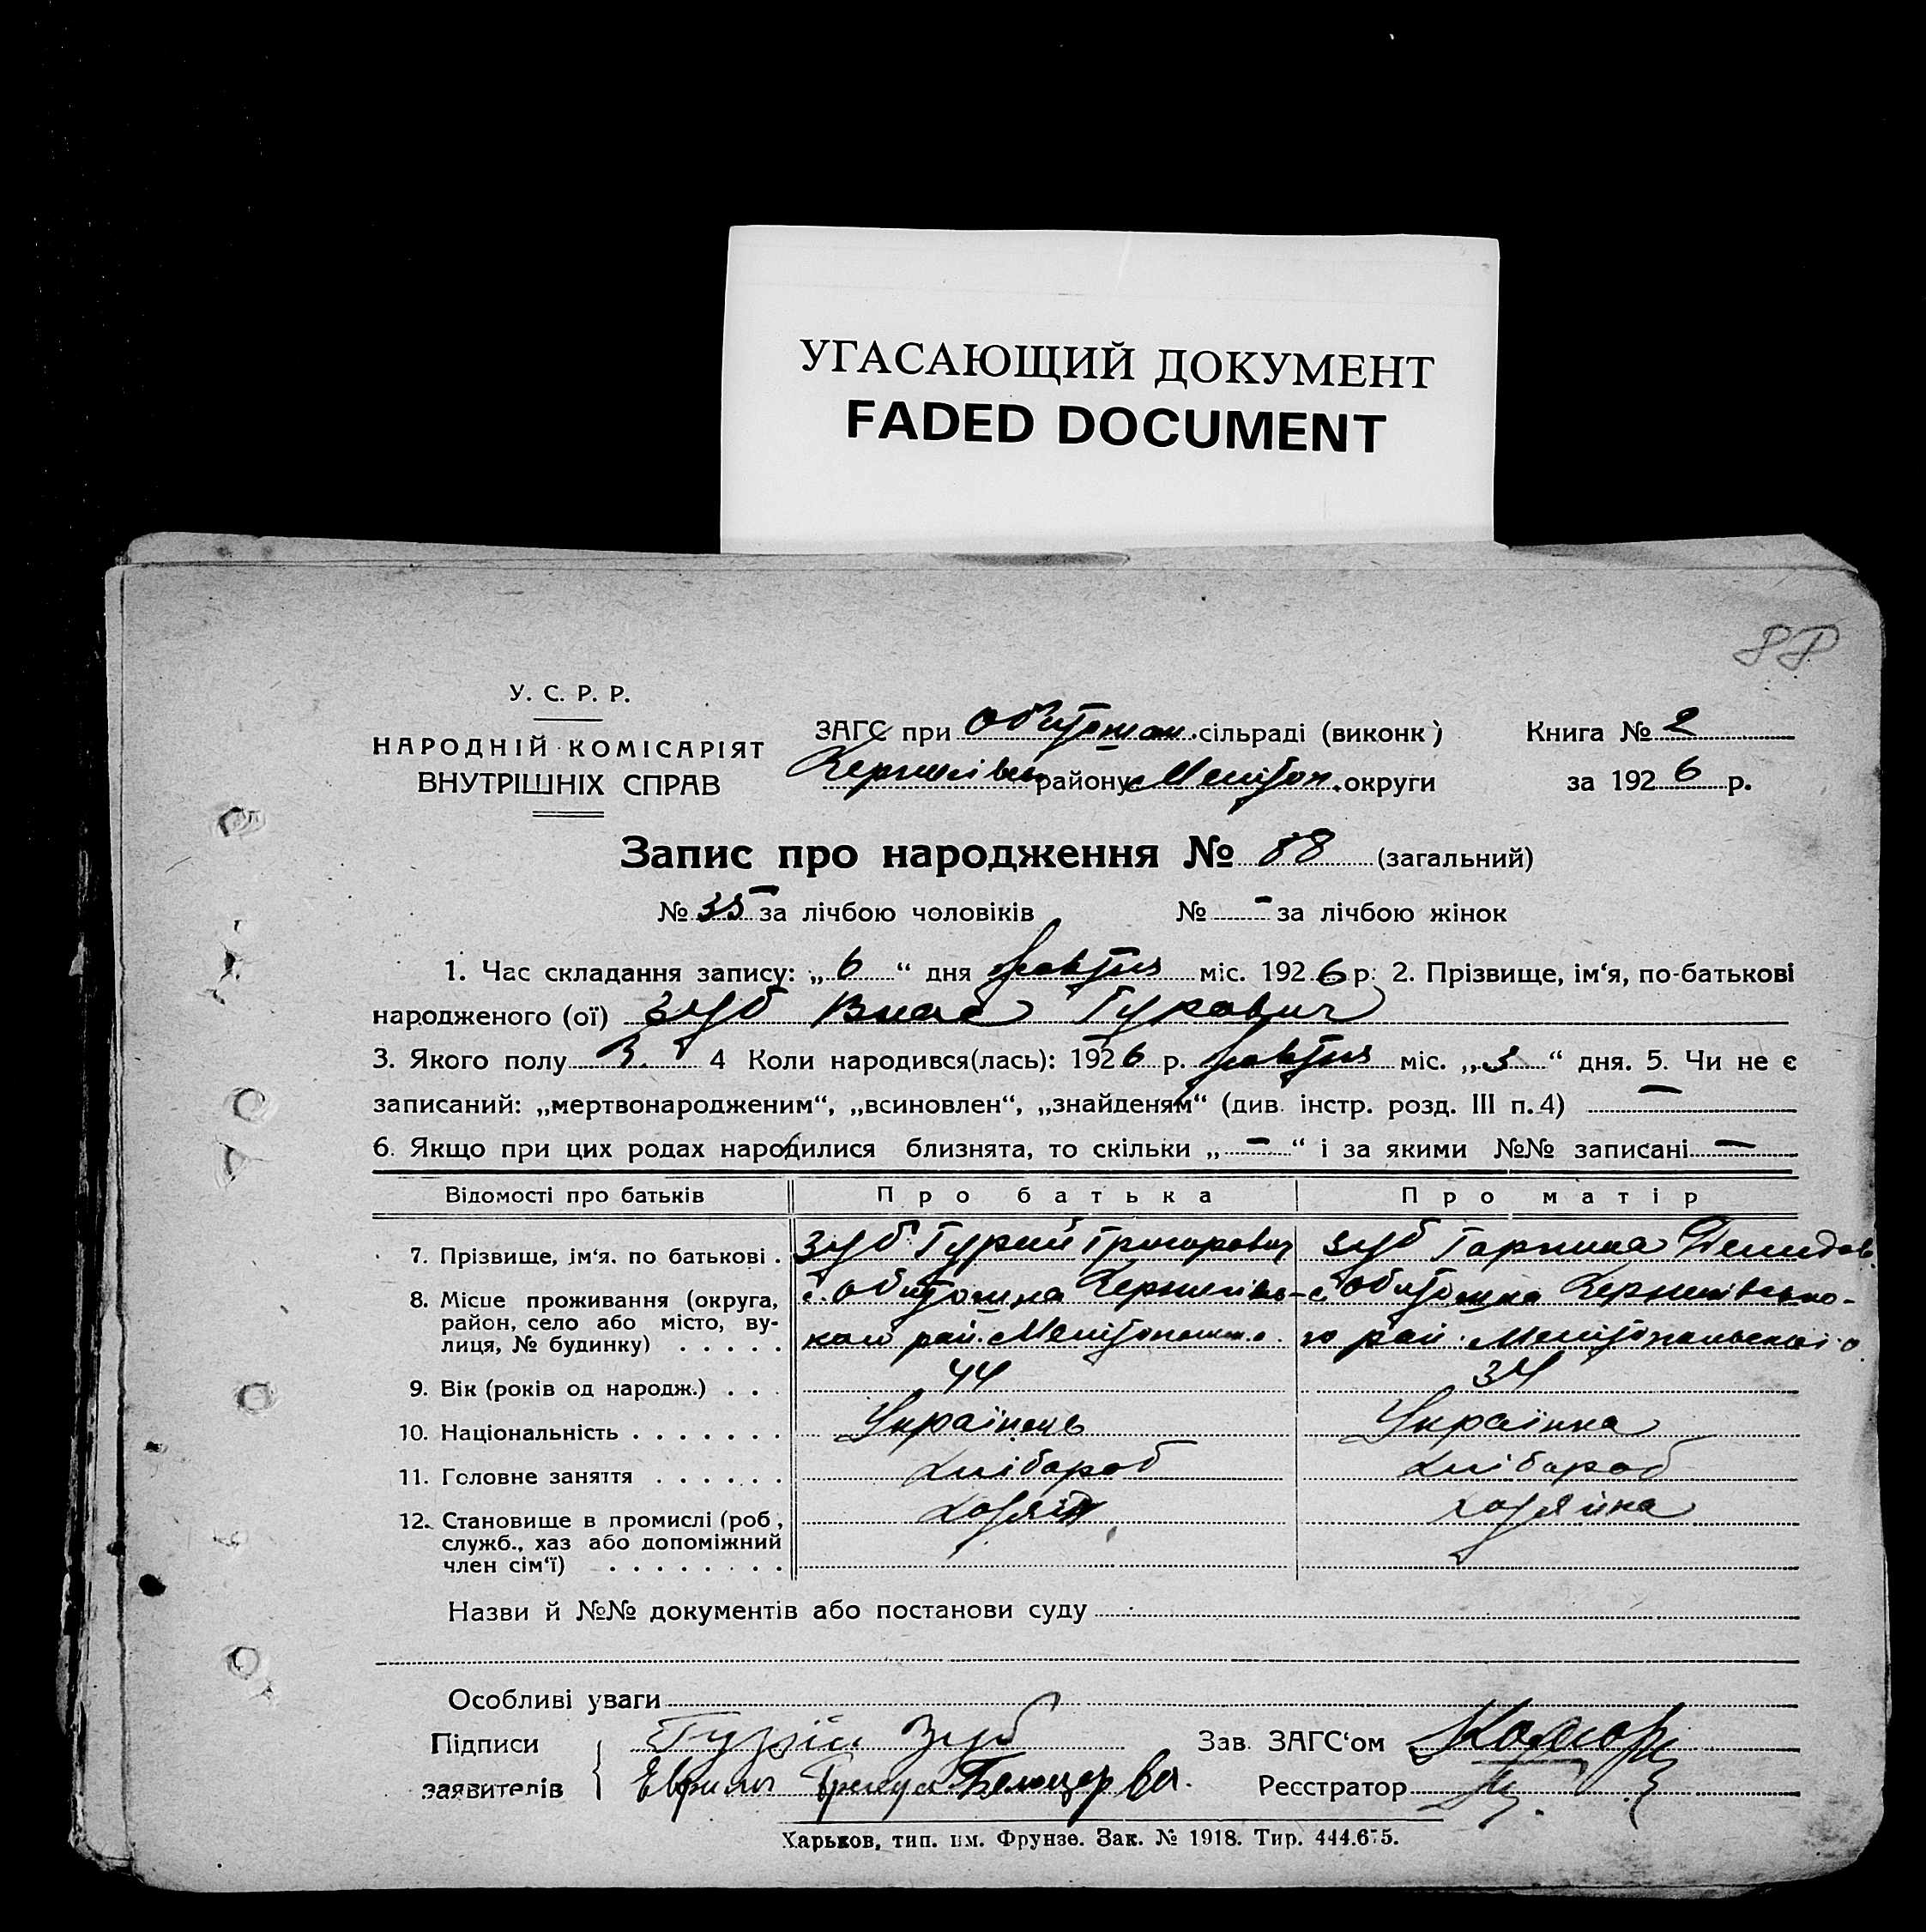 УГАСАЮЩИЙ ДОКУМЕНТ
FADED DOCUMENT
88
У. С. Р. Р.
НАРОДНІЙ КОМІСАРІЯТ
ВНУТРІШНІХ СПРАВ
ЗАГС при Обитошан. сільраді (виконк)
Чернигівськ району Мелітоп. округи
Книга № 2
за 1926 р.
Запис про народження № 88 (загальний)
№ 35 за лічбою чоловіків № - за лічбою жінок
1. Час складання запису: „6“ дня жовтня міс. 1926 р. 2. Прізвище, ім‘я, по-батькові
народженого (ої) Зуб Влас Гурович
3. Якого полу Ч. 4 Коли народився(лась): 1926 р. жовтня міс. „3“ дня. 5. Чи не є
записаний: „мертвонародженим“, „всиновлен“, „знайденям“ (див. інстр. розд. III п. 4) —
6. Якщо при цих родах народилися близнята, то скільки „—“ і за якими №№ записані —
Відомості про батьків Про батька Про матір
7. Прізвище, ім‘я. по батькові . Зуб Гурий Григорович Зуб Гарпина Демидов.
8. Місце проживання (округа, район, село або місто, вулиця, № будинку) . . . . . с. Обитошна Чернигівського рай. Мелітопольськ. о. с. Обитошна Чернигівського рай. Мелітопольської о.
9. Вік (років од народж.) . . . 44 34
10. Національність . . . . . . . Українець Українка
11. Головне заняття . . . . . . Хлібороб Хлібороб
12. Становище в промислі (роб., служб., хаз або допоміжний член сім‘ї) . . . . . . . . Хозяїн Хозяйка
Назви й №№ документів або постанови суду
Особливі уваги
Підписи Гурій Зуб Зав. ЗАГС‘ом
заявителів Реєстратор
Харьков, тип. им. Фрунзе. Зак. № 1918. Тир. 444.675.